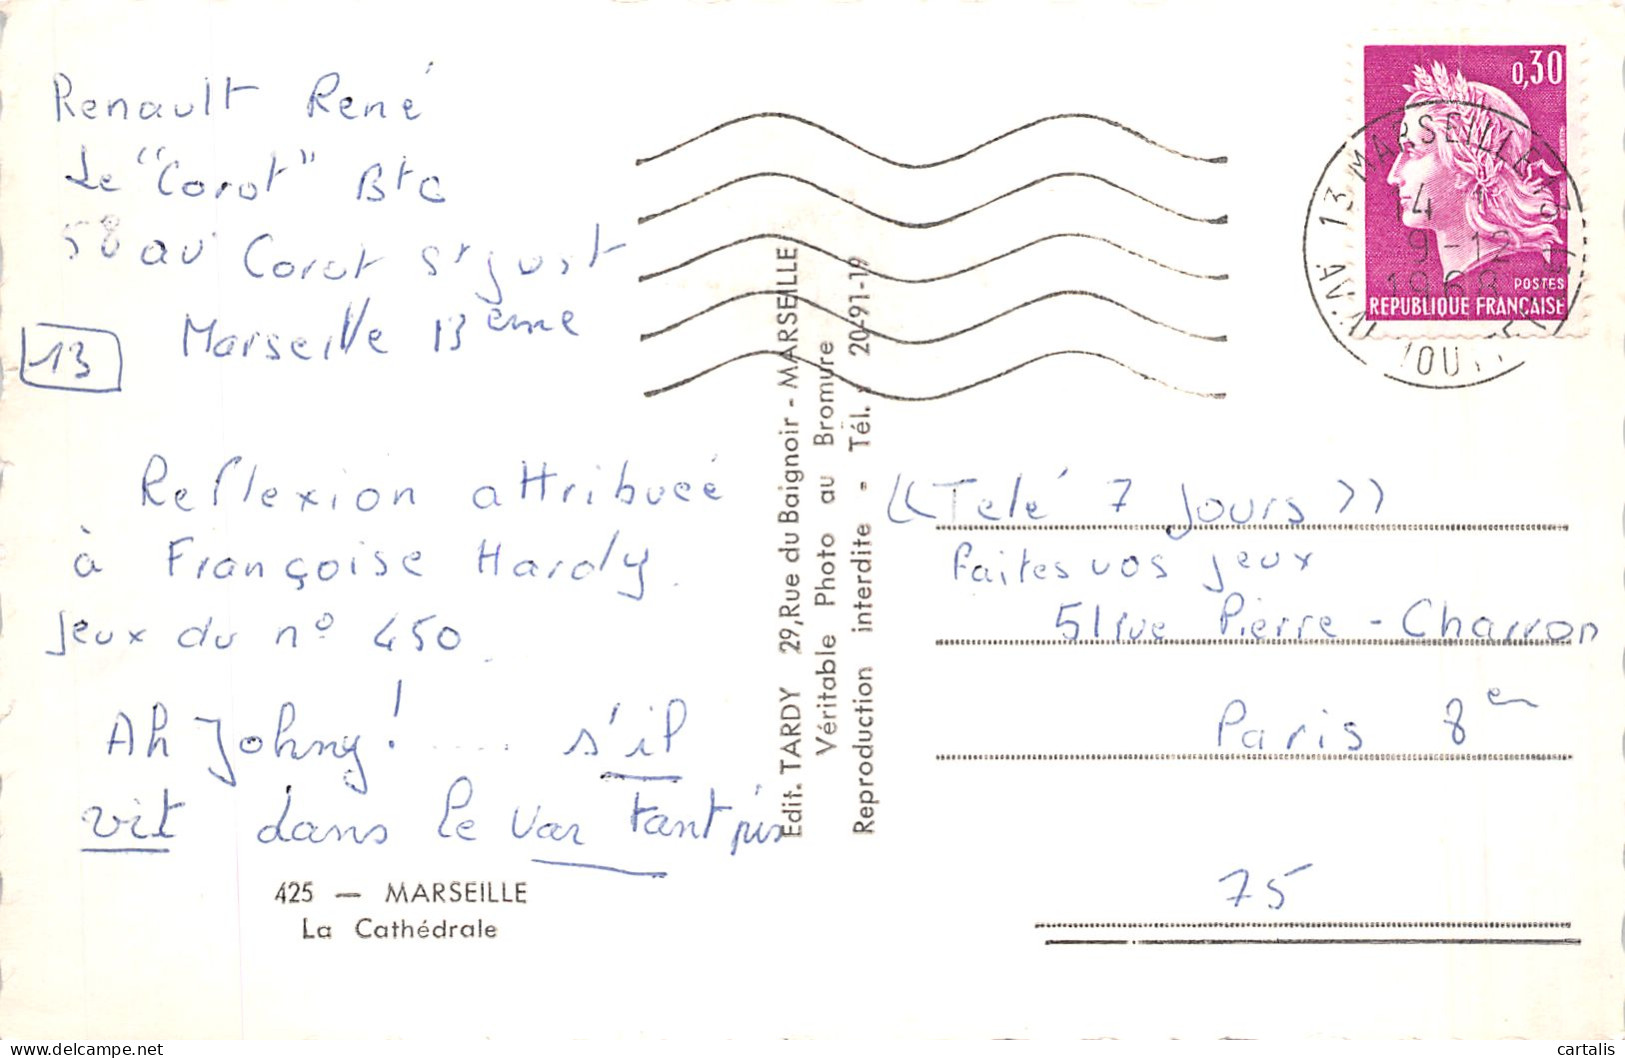 Renault René
Le "Corot" Bt C
58 av Corot St Just
Marseille 13ème
13
Reflexion attribuée
à Françoise Hardy.
Jeux du n° 450.
Ah Johny! .... s'il
vit dans le Var tant pis
425 — MARSEILLE
La Cathédrale
Edit. TARDY 29, Rue du Baignoir - MARSEILLE
Véritable Photo au Bromure
Reproduction interdite - Tél. 20-91-19
0,30
POSTES
REPUBLIQUE FRANÇAISE
13 MARSEILLE 13
14
9-12
1968
«Telé 7 Jours»
faites vos jeux
51 rue Pierre-Charron
Paris 8en
75
cartalis